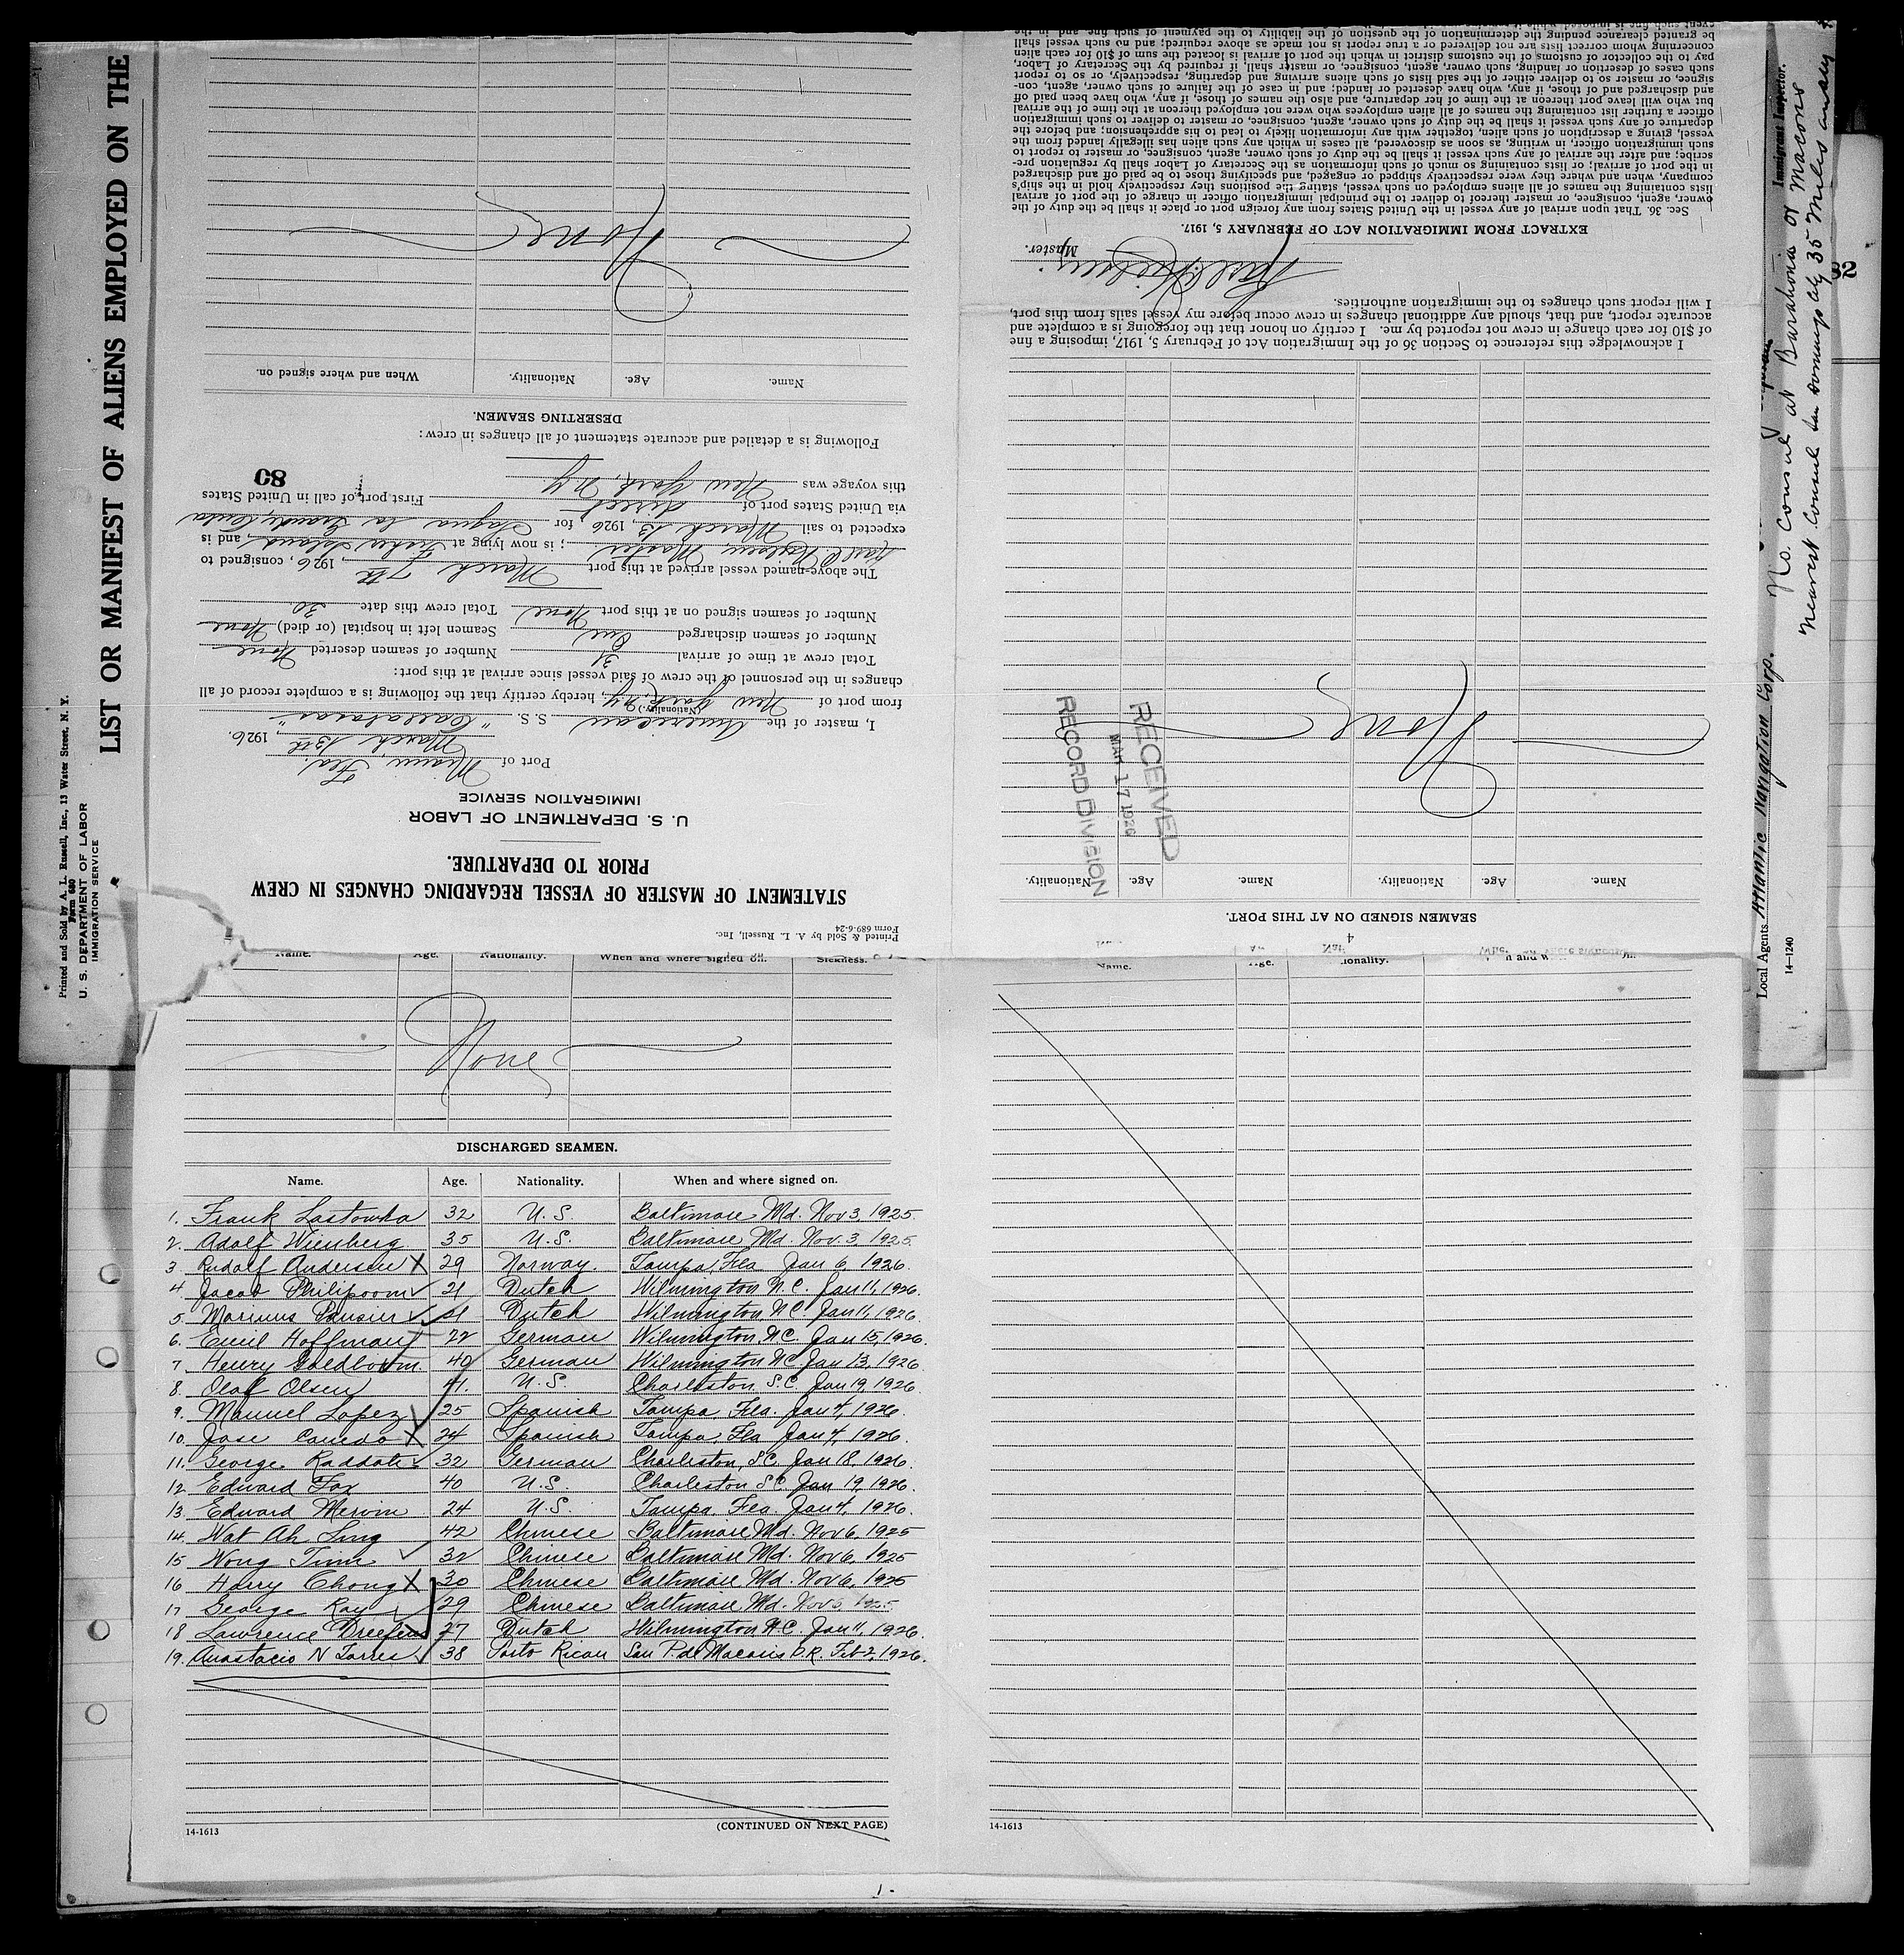 LIST OR MANIFEST OF ALIENS EMPLOYED ON THE
Printed and Sold by A. L. Russell, Inc., 13 Water Street, N. Y.
Form 680
U. S. DEPARTMENT OF LABOR
IMMIGRATION SERVICE
Printed & Sold by A. L. Russell, Inc.
Form 689-6-24
STATEMENT OF MASTER OF VESSEL REGARDING CHANGES IN CREW
PRIOR TO DEPARTURE.
U. S. DEPARTMENT OF LABOR
IMMIGRATION SERVICE
Port of Miami, Fla.
March 13th, 1926
I, master of the American S. S.
(Nationality.)
from port of New York, N.Y., hereby certify that the following is a complete record of all
changes in the personnel of the crew of said vessel since arrival at this port:
Total crew at time of arrival 31 Number of seamen deserted None
Number of seamen discharged One Seamen left in hospital (or died) None
Number of seamen signed on at this port None Total crew this date 30
The above-named vessel arrived at this port March 7th, 1926, consigned to
Master; is now lying at Fisher Island, and is
expected to sail March 13, 1926, for Sagua la Grande, Cuba
via United States port of direct First port of call in United States
this voyage was New York, N.Y.
80
Following is a detailed and accurate statement of all changes in crew:
DESERTING SEAMEN.
Name. Age. Nationality. When and where signed on.
None
SEAMEN SIGNED ON AT THIS PORT.
4
Name. Age. Nationality. Name. Age. Nationality.
RECEIVED
MAR 17 1926
RECORD DIVISION
None
I acknowledge this reference to Section 36 of the Immigration Act of February 5, 1917, imposing a fine
of $10 for each change in crew not reported by me. I certify on honor that the foregoing is a complete and
accurate report, and that, should any additional changes in crew occur before my vessel sails from this port,
I will report such changes to the immigration authorities.
Master.
EXTRACT FROM IMMIGRATION ACT OF FEBRUARY 5, 1917.
Sec. 36. That upon arrival of any vessel in the United States from any foreign port or place it shall be the duty of the
owner, agent, consignee, or master thereof to deliver to the principal immigration officer in charge of the port of arrival
lists containing the names of all aliens employed on such vessel, stating the positions they respectively hold in the ship's
company, when and where they were respectively shipped or engaged, and specifying those to be paid off and discharged
in the port of arrival; or lists containing so much of such information as the Secretary of Labor shall by regulation pre-
scribe; and after the arrival of any such vessel it shall be the duty of such owner, agent, consignee, or master to report to
such immigration officer, in writing, as soon as discovered, all cases in which any such alien has illegally landed from the
vessel, giving a description of such alien, together with any information likely to lead to his apprehension; and before the
departure of any such vessel it shall be the duty of such owner, agent, consignee, or master to deliver to such immigration
officer a further list containing the names of all alien employees who were not employed thereon at the time of the arrival
but who will leave port thereon at the time of her departure, and also the names of those, if any, who have been paid off
and discharged and of those, if any, who have deserted or landed; and in case of the failure of such owner, agent, con-
signee, or master so to deliver either of the said lists of such aliens arriving and departing, respectively, or so to report
such cases of desertion or landing, such owner, agent, consignee, or master shall, if required by the Secretary of Labor,
pay to the collector of customs of the customs district in which the port of arrival is located the sum of $10 for each alien
concerning whom correct lists are not delivered or a true report is not made as above required; and no such vessel shall
be granted clearance pending the determination of the question of the liability to the payment of such fine and in the
Immigrant Inspector.
No. Consul at Barahona or Macoris
nearest Consul San Domingo City 35 Miles away
Local Agents Atlantic Navigation Corp.
14-1240
32
Name. Age. Nationality. When and where signed on. Sickness.
None
DISCHARGED SEAMEN.
Name. Age. Nationality. When and where signed on.
1. Frank Lastowka 32 U.S. Baltimore Md. Nov 3, 1925.
2. Adolf Wienberg 35 U.S. Baltimore Md. Nov. 3, 1925.
3. Rudolf Andersen X 29 Norway. Tampa, Fla Jan 6, 1926.
4. Jacob Philipoom 21 Dutch Wilmington N.C. Jan 11, 1926.
5. Marinus 21 Dutch Wilmington, N.C. Jan 11, 1926.
6. Emil Hoffman 22 German Wilmington, N.C. Jan 15, 1926.
7. Henry Goldboom. 40 German Wilmington N.C. Jan 13, 1926
8. Olaf Olsen 41. U.S. Charleston S.C. Jan 19, 1926.
9. Manuel Lopez 25 Spanish Tampa, Fla. Jan 4, 1926.
10. Jose Canedo X 24 Spanish Tampa, Fla Jan 4, 1926.
11. George Raddatz 32 German Charleston, S.C. Jan 18, 1926.
12. Edward Fox 40 U.S. Charleston S.C. Jan 19, 1926.
13. Edward Mervin 24 U.S. Tampa, Fla. Jan 4, 1926.
14. Wat Ah Sing 42 Chinese Baltimore Md. Nov 6, 1925
15 Wong Tim 32 Chinese Baltimore Md. Nov 6, 1925
16 Harry Chong X 30 Chinese Baltimore Md. Nov 6, 1925
17 George Ray 29 Chinese Baltimore Md. Nov 5, 1925.
18 Lawrence 27 Dutch Wilmington N.C. Jan 11, 1926.
19. Anastacio N Torres 38 Porto Rican San P. de Macoris D.R. Feb 2, 1926.
14-1613
(CONTINUED ON NEXT PAGE)
14-1613
1-